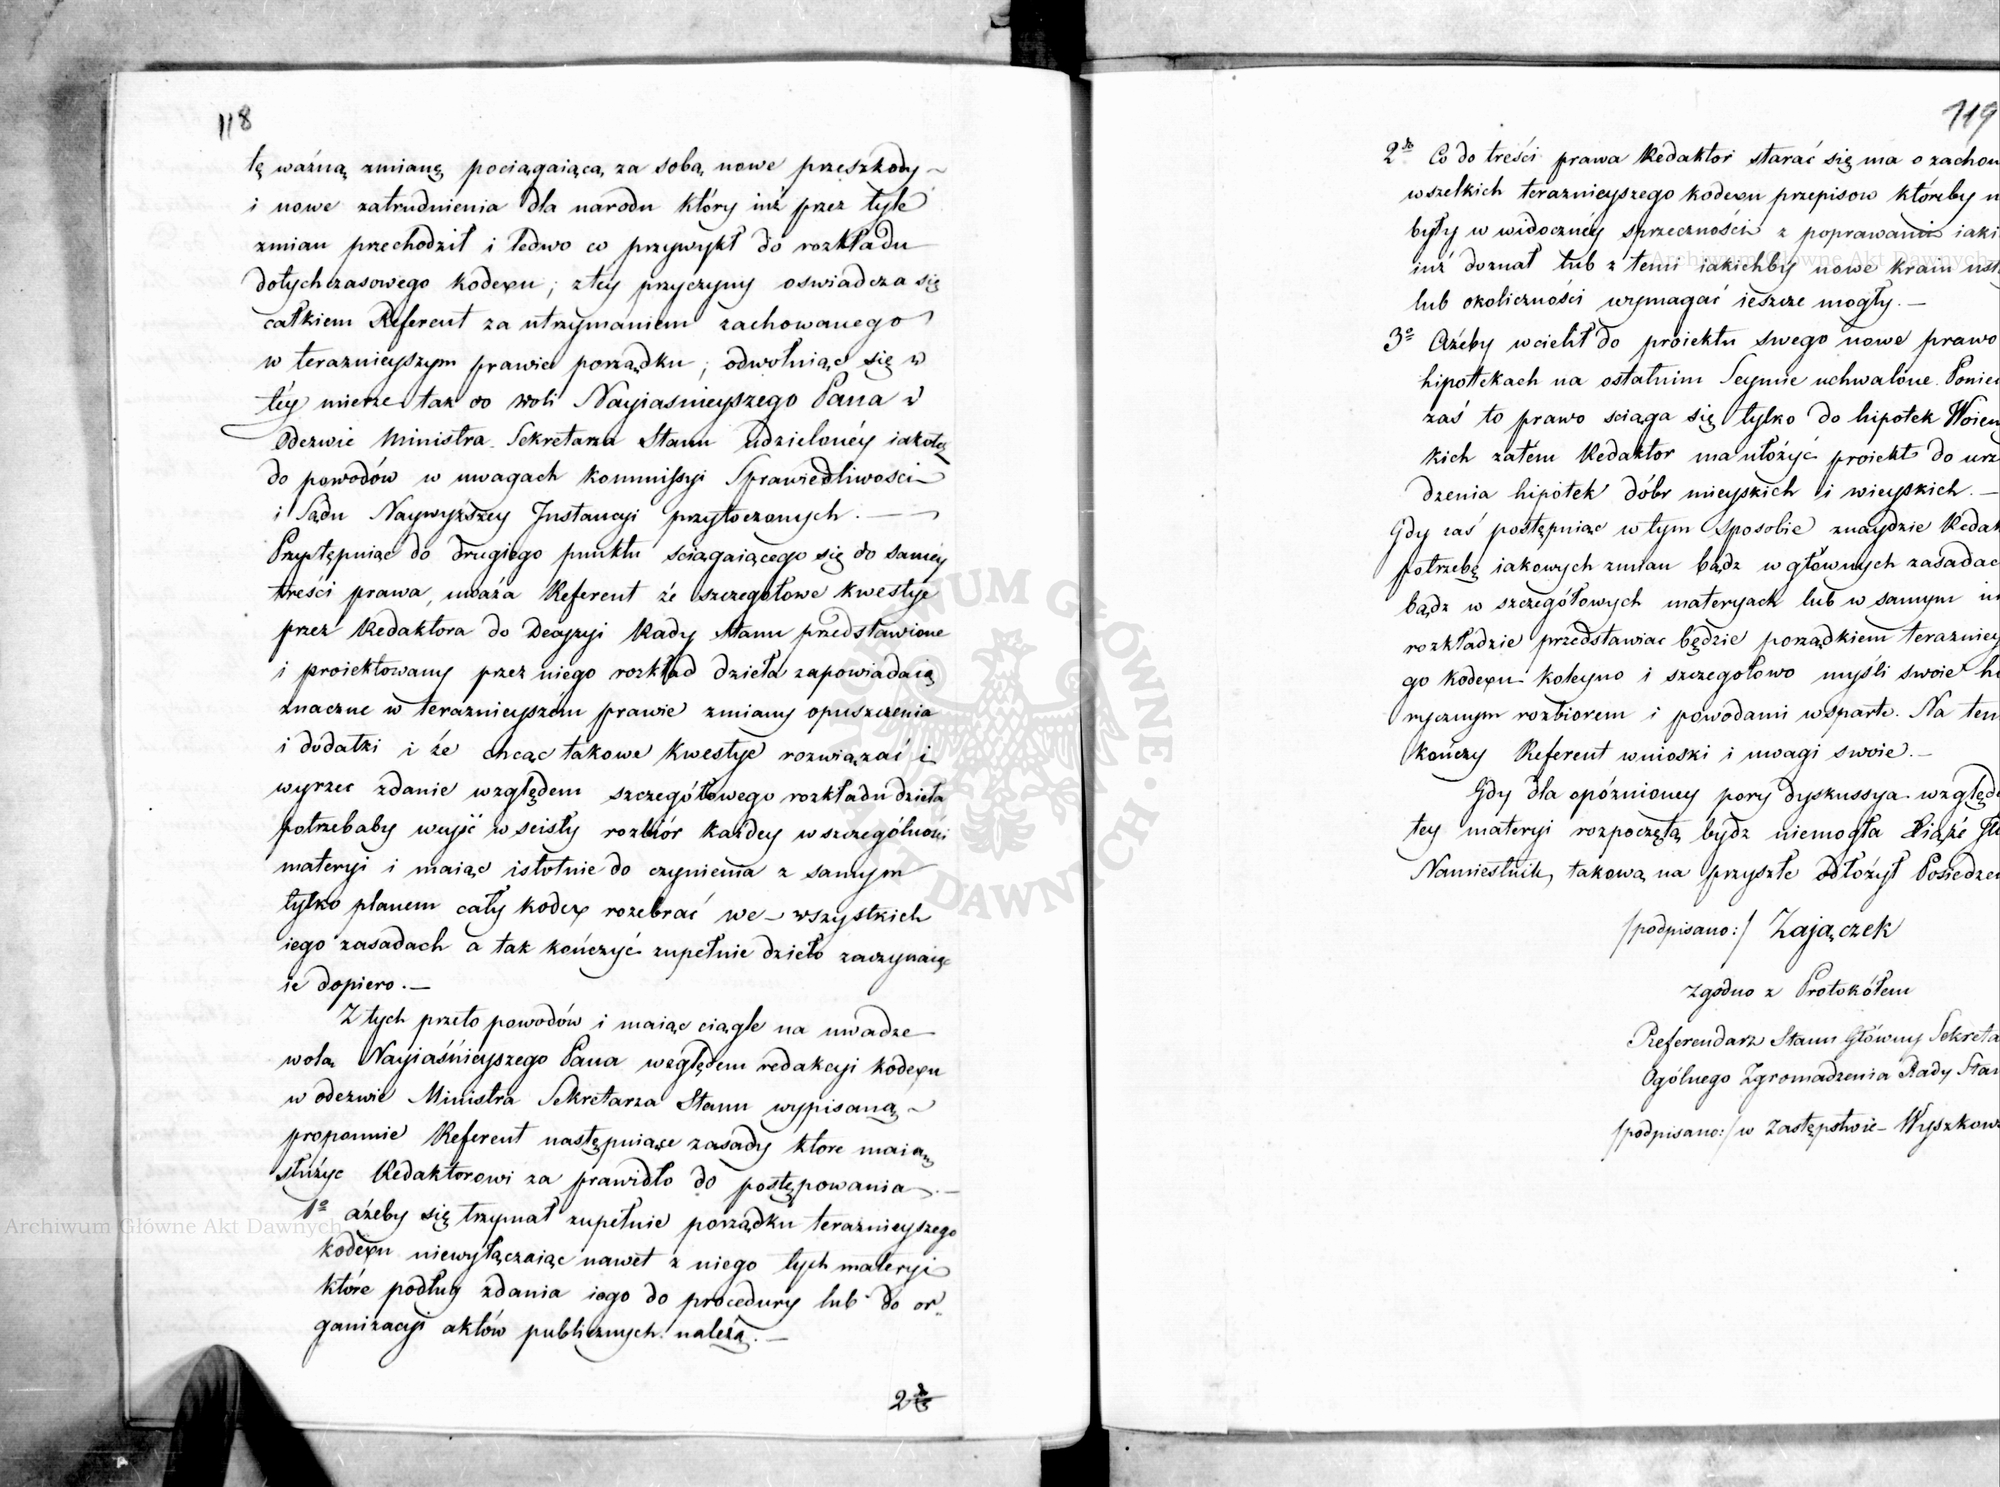 118
tę ważną zmianę pociągaiącą za sobą nowe przeszkody
i nowe zatrudnienia dla narodu który iuż przez tyle
zmian przechodził i ledwo co przywykł do rozkładu
dotychczasowego kodexu; ztey przyczyny oswiadcza się
całkiem Referent za utrzymaniem zachowanego
w teraznieyszym prawie porządku; odwołuiąc się w
tey mierze tak do woli Nayiasnieyszego Pana w
Odezwie Ministra Sekretarza Stanu udzieloney iakoteż
do powodów w uwagach kommissyi Sprawiedliwosci
i Sądu Naywyższey Instancyi przytoczonych. —
Przystępuiąc do drugiego punktu sciągaiącego się do samey
treści prawa, uważa Referent że szczegołowe kwestye
przez Redaktora do Decyzyi Rady Stanu przedstawione
i proiektowany przez niego rozkład dzieła zapowiadaią
znaczne w teraznieyszem prawie zmiany opuszczenia
i dodatki i że chcąc takowe kwestye rozwiązać i
wyrzec zdanie względem szczegółowego rozkładu dzieła
potrzebaby weyść w scisły rozbiór każdey w szczególności
materyi i maiąc istotnie do czynienia z samym
tylko planem cały kodex rozebrać we wszystkich
iego zasadach a tak kończyć zupełnie dzieło zaczynaiąc
ie dopiero. —
Z tych przeto powodów i maiąc ciągle na uwadze
wolą Nayiaśnieyszego Pana względem redakcyi kodexu
w odezwie Ministra Sekretarza Stanu wypisaną
proponuie Referent następuiące zasady ktore maią
służyc Redaktorowi za prawidło do postępowania. —
1º ażeby się trzymał zupełnie porządku teraznieyszego
kodexu niewyłączaiąc nawet z niego tych materyi
które podług zdania iego do procedury lub do or„
ganizacyi aktów publicznych należą. —
2do
119
2do Co do treści prawa Redaktor starać się ma o zachow
wszelkich teraznieyszego kodexu przepisow któreby n
były w widoczney sprzeczności z poprawami iaki
iuż doznał lub z temi iakichby nowe kraiu ust
lub okoliczności wymagać ieszcze mogły. —
3º Ażeby wcielił do proiektu swego nowe prawo
hipotekach na ostatnim Seymie uchwalone. Poniew
zaś to prawo sciąga się tylko do hipotek Woiew
kich zatem Redaktor ma ułożyć proiekt do urz
dzenia hipotek dóbr mieyskich i wieyskich. —
Gdy zaś postępuiąc w tym sposobie znaydzie Redak
potrzebę iakowych zmian bądz w głównych zasadac
bądz w szczegółowych materyach lub w samym in
rozkładzie przedstawiac będzie porządkiem teraznieys
go kodexu koleyno i szczegołowo myśli swoie hi
rycznym rozbiorem i powodami wsparte. Na tem
kończy Referent wnioski i uwagi swoie. —
Gdy dla opóznioney pory dyskussya względe
tey materyi rozpoczętą bydz niemogła Xiąże
Namiestnik, takową na przyszłe odłożył Posiedzen
/podpisano:/ Zajączek
Zgodno z Protokółem
Referendarz Stanu Główny Sekreta
Ogólnego Zgromadzenia Rady Stan
/podpisano:/ w Zastępstwie Wyszkows
ARCHIWUM GŁÓWNE AKT DAWNYCH
Archiwum Główne Akt Dawnych
Archiwum Główne Akt Dawnych